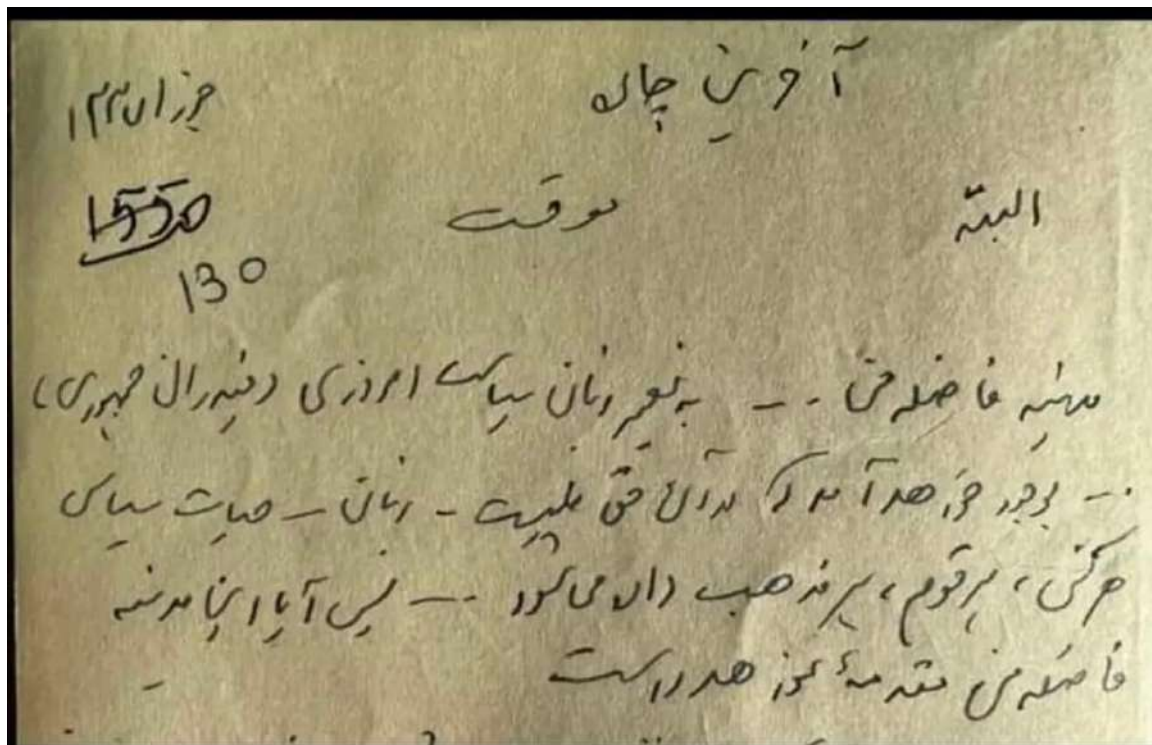 آخرین چاپ
البته موقت
130
مدینه فاضله من --- به تعبیر زبان سیاست امروزی (فیدرال جمهوری)
--- بوجود خواهد آمد که در آن حق ملکیت - زبان - حیات سیاسی
هرکس، هر قوم، هر مذهب داده می‌شود --- پس آیا اینجا مدینه
فاضله من مقدمهٔ است